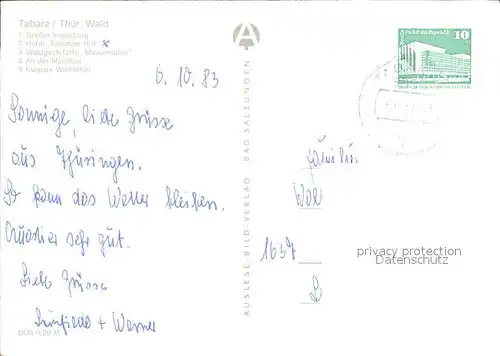 Tabarz / Thür. Wald
1 Großer Inselsberg
2 Hotel „Tabarzer Hof" x
3 Waldgaststätte „Massemühle"
4 An der Mosthal
5 Kurpark Winkelhof
6.10.83
Sonnige, liebe Grüsse
aus Thüringen.
So kann das Wetter bleiben.
Quartier sehr gut.
Liebe Grüsse
+ Werner
DDR 0,20 M
AUSLESE-BILD-VERLAG BAD SALZUNGEN
Palast der Republik
10
DDR
Familie
1637
privacy protection
Datenschutz